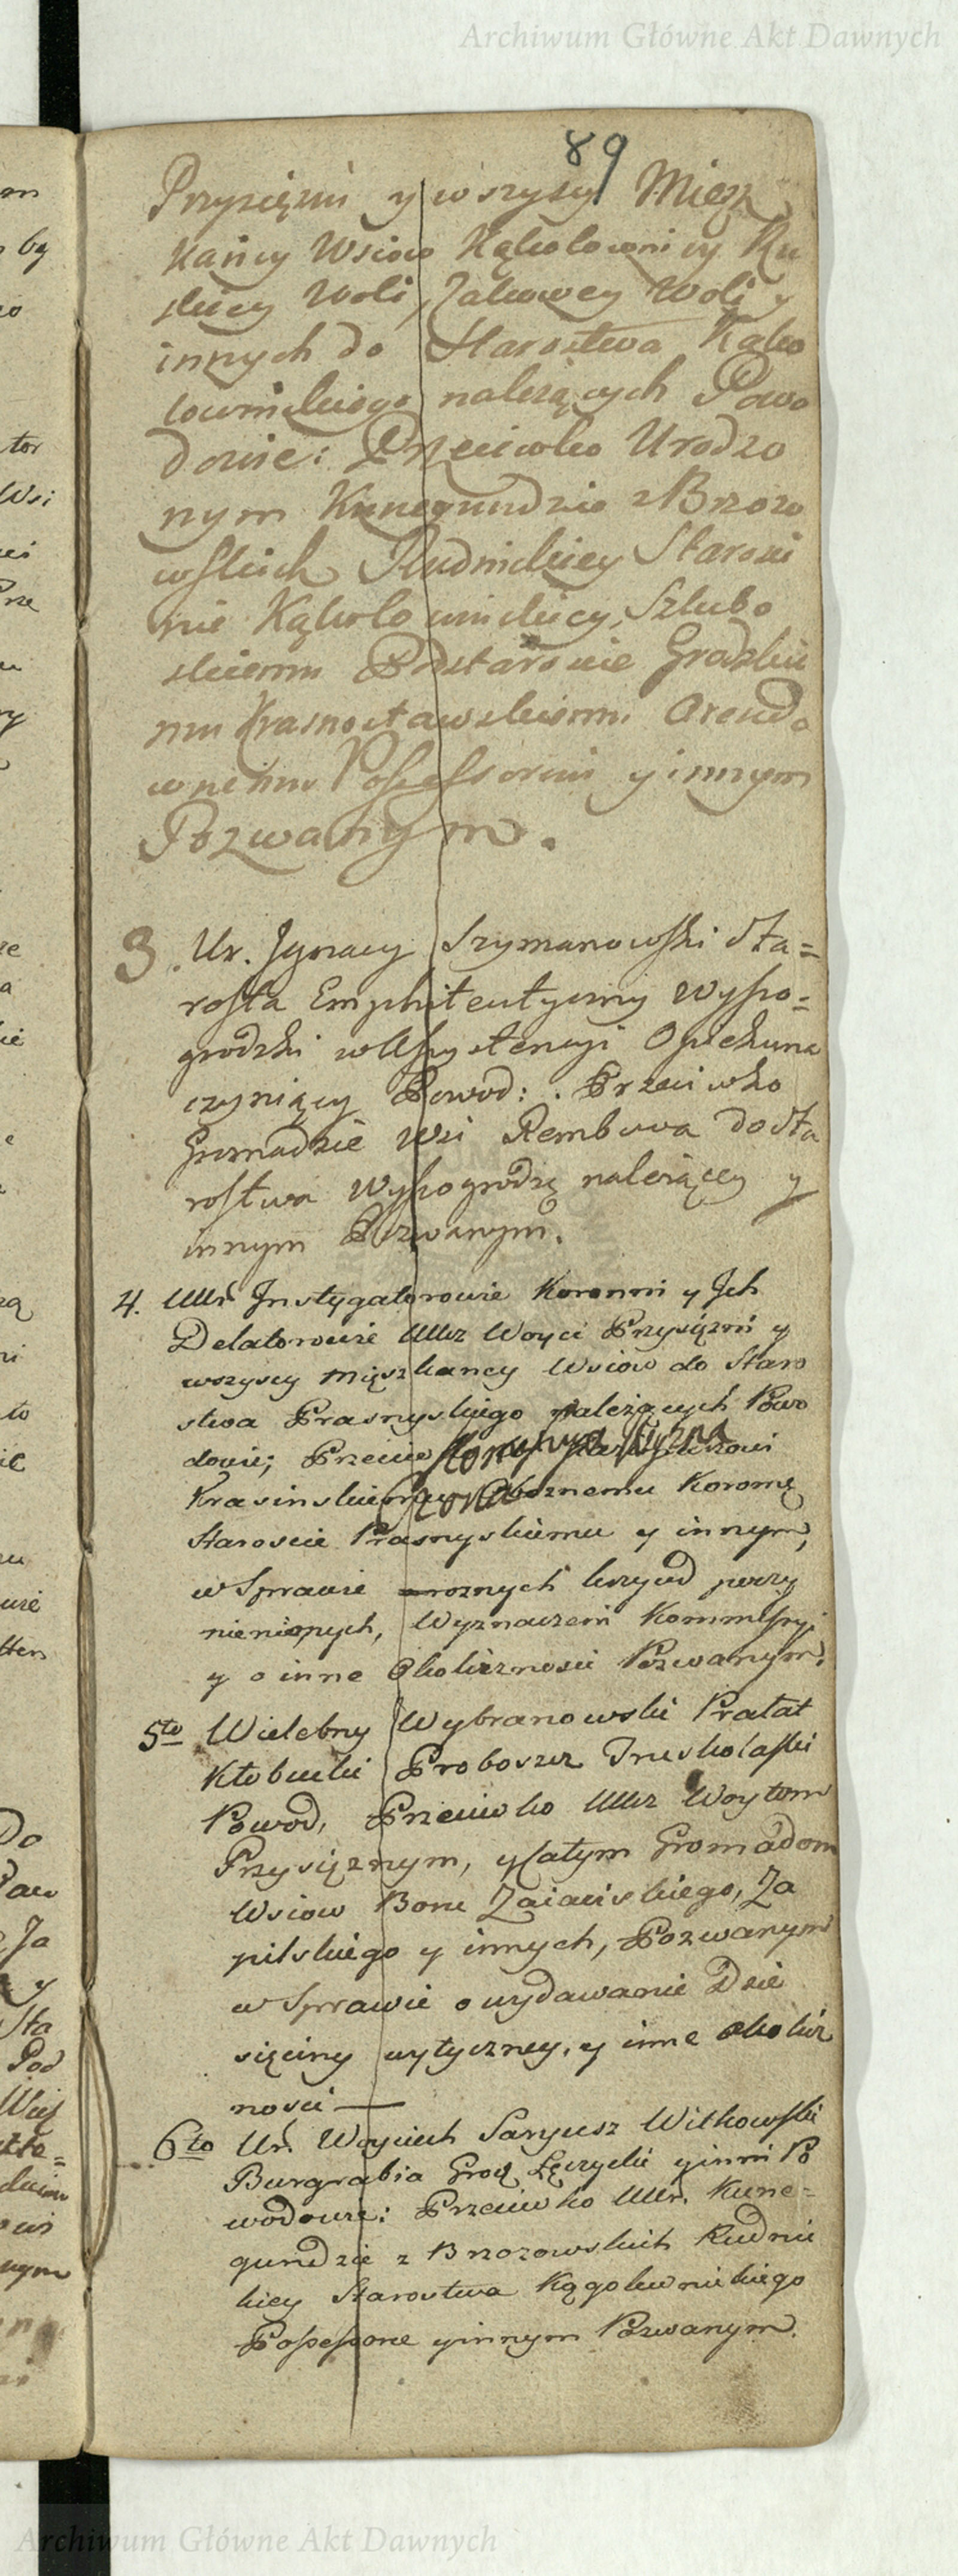 Archiwum Główne Akt Dawnych
89
Przysiężni y wszyscy Miesz
kańcy Wsiow Kąkolownicy Ru
skiey Woli, Zakowey Woli y
innych do Starostwa Kąko
lownickiego należących Powo
dowie: Przeciwko Urodzo
nym Kunegundzie z Brzozo
wskich Rudnickiey Starosci
nie Kąkolownickiey, Szlubo
skiemu Podstaroscie Grodzkie
mu Krasnostawskiemu Arendo
wnemu Possessorowi y innym
Pozwanym.
3. Ur. Jgnacy Szymanowski Sta=
rosta Emphiteutyczny Wyszo=
grodzki w Assystencyi Opiekuna
czyniący Powod: Przeciwko
Gromadzie Wsi Rembowa do Sta
rostwa Wyszogrodzą należącey y
innym Pozwanym.
4. UUr. Jnstygatorowie Koronni y Jch
Delatorowie UUcz Woyci Przysiężni y
wszyscy Mięszkancy Wsiow do Staro
stwa Prasnyskiego należących Powo
dowie; Przeciw
Krasinskiemu Oboznemu Koronę
Staroscie Prasnyskiemu y innym,
w Sprawie roznych krzywd poczy
nienionych, Wyznaczeni Kommissyi
y o inne Okoliznosci Pozwanym.
5to Wielebny Wybranowski Prałat
Kłobucki Proboszcz Truskolaski
Powod, Przeciwko UUcz Woytom
Przysięznym, y całym Gromadom
Wsiow Bonu Zaiacskiego, Za
pilskiego y innych, Pozwanym
w Sprawie o wydawanie Dzie
sięciny wytyczney, y inne okolicz
nosci —
6to Ur. Woyciech Saryusz Witkowski
Burgrabia Grod Łęczycki y inni Po
wodowie: Przeciwko UUr. Kune=
gundzie z Brzozowskich Rudnic
kiey Starostwa Kągolewnickiego
Possessorce y innym Pozwanym.
Archiwum Główne Akt Dawnych